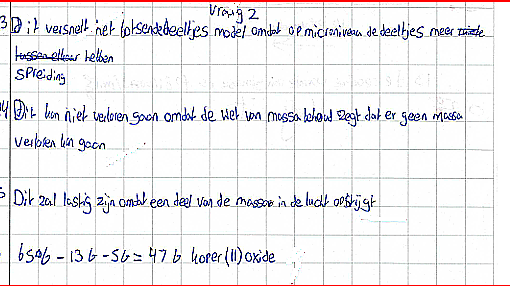 Vraag 2
3 Dit versnelt het botsendedeeltjes model omdat op microniveau de deeltjes meer
tussen elkaar hebben
spreiding
4 Dit kan niet verloren gaan omdat de wet van massa behoud zegt dat er geen massa
verloren kan gaan
5 Dit zal lastig zijn omdat een deel van de massa in de lucht opstijgt
65 g - 13 g - 5 g = 47 g koper(II)oxide